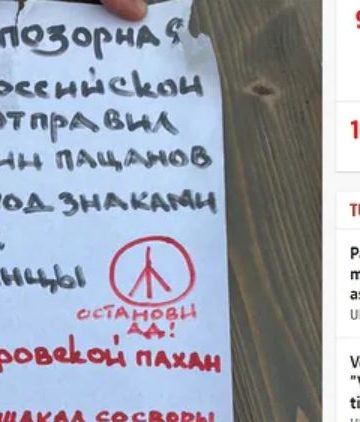 ПОЗОРНАЯ
ОССИЙСКОЙ
ОТПРАВИЛ
ИН ПАЦАНОВ
ПОД ЗНАКАМИ
НЦЫ
ОСТАНОВИ
АД!
РОВСКОЙ ПАХАН
ШАКАЛ СО СВОРЫ
9
1
T
P
m
a
U
V
"
ti